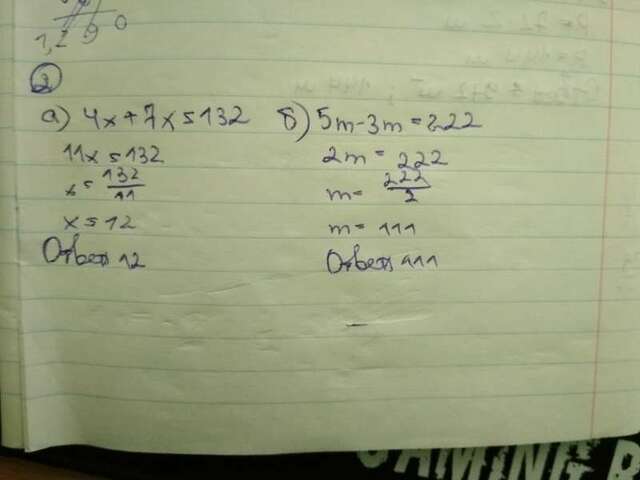 1,2 9 0
2
а) 4x + 7x = 132 б) 5m - 3m = 222
11x = 132 2m = 222
x = 132/11 m = 222/2
x = 12 m = 111
Ответ 12 Ответ 111
GAMING